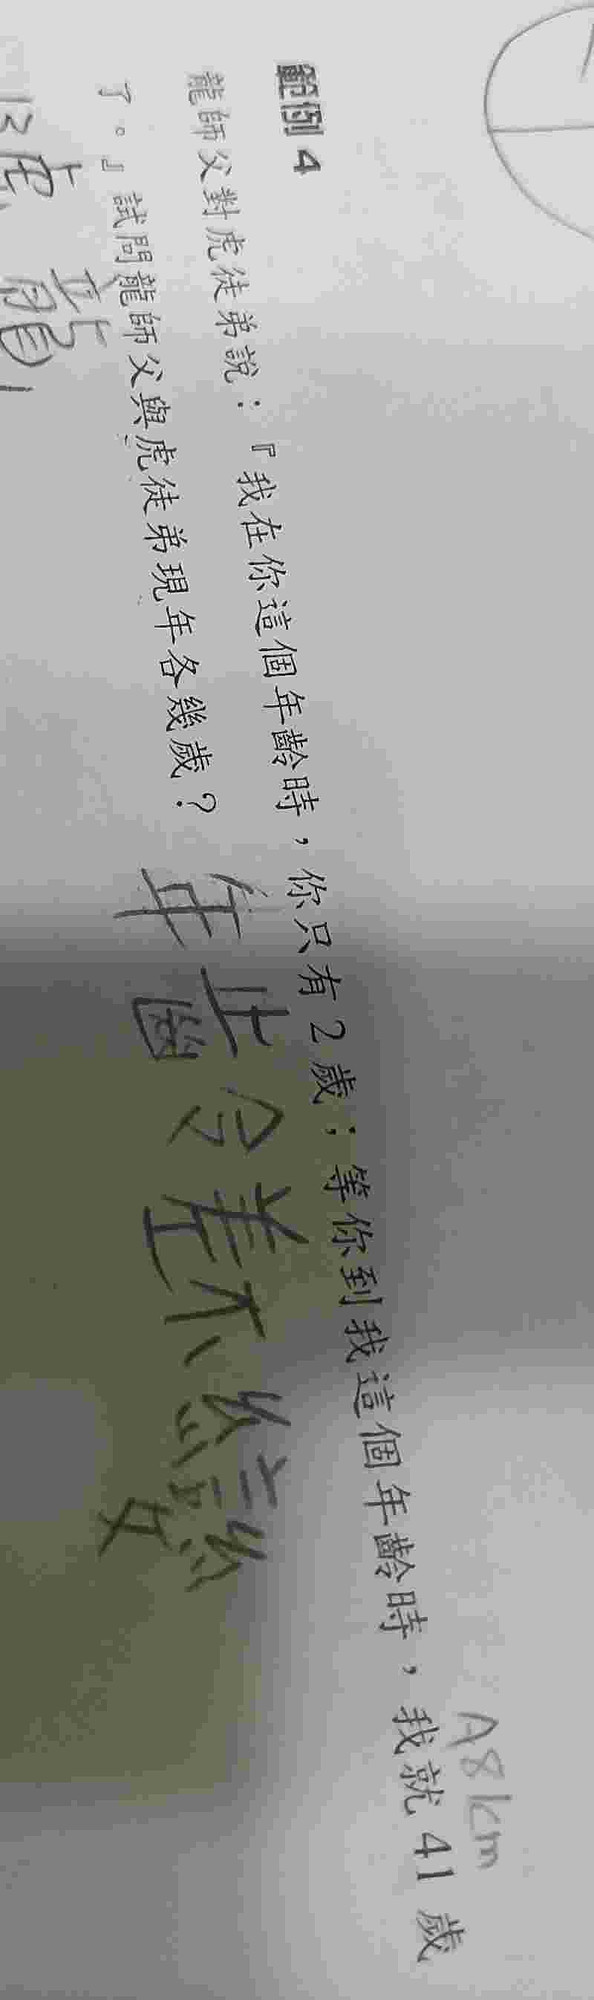 A8km
範例 4
龍師父對虎徒弟說：『我在你這個年齡時，你只有 2 歲；等你到我這個年齡時，我就 41 歲
了。』試問龍師父與虎徒弟現年各幾歲？
年齡差不變
虎 龍